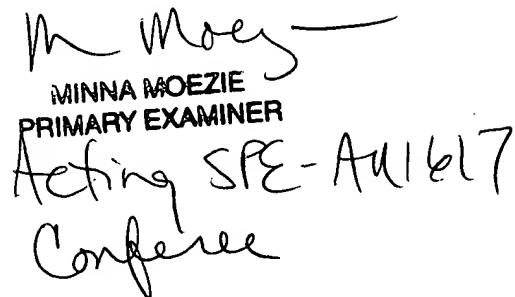 M Moezie
MINNA MOEZIE
PRIMARY EXAMINER
Acting SPE-AU1617
Conferee